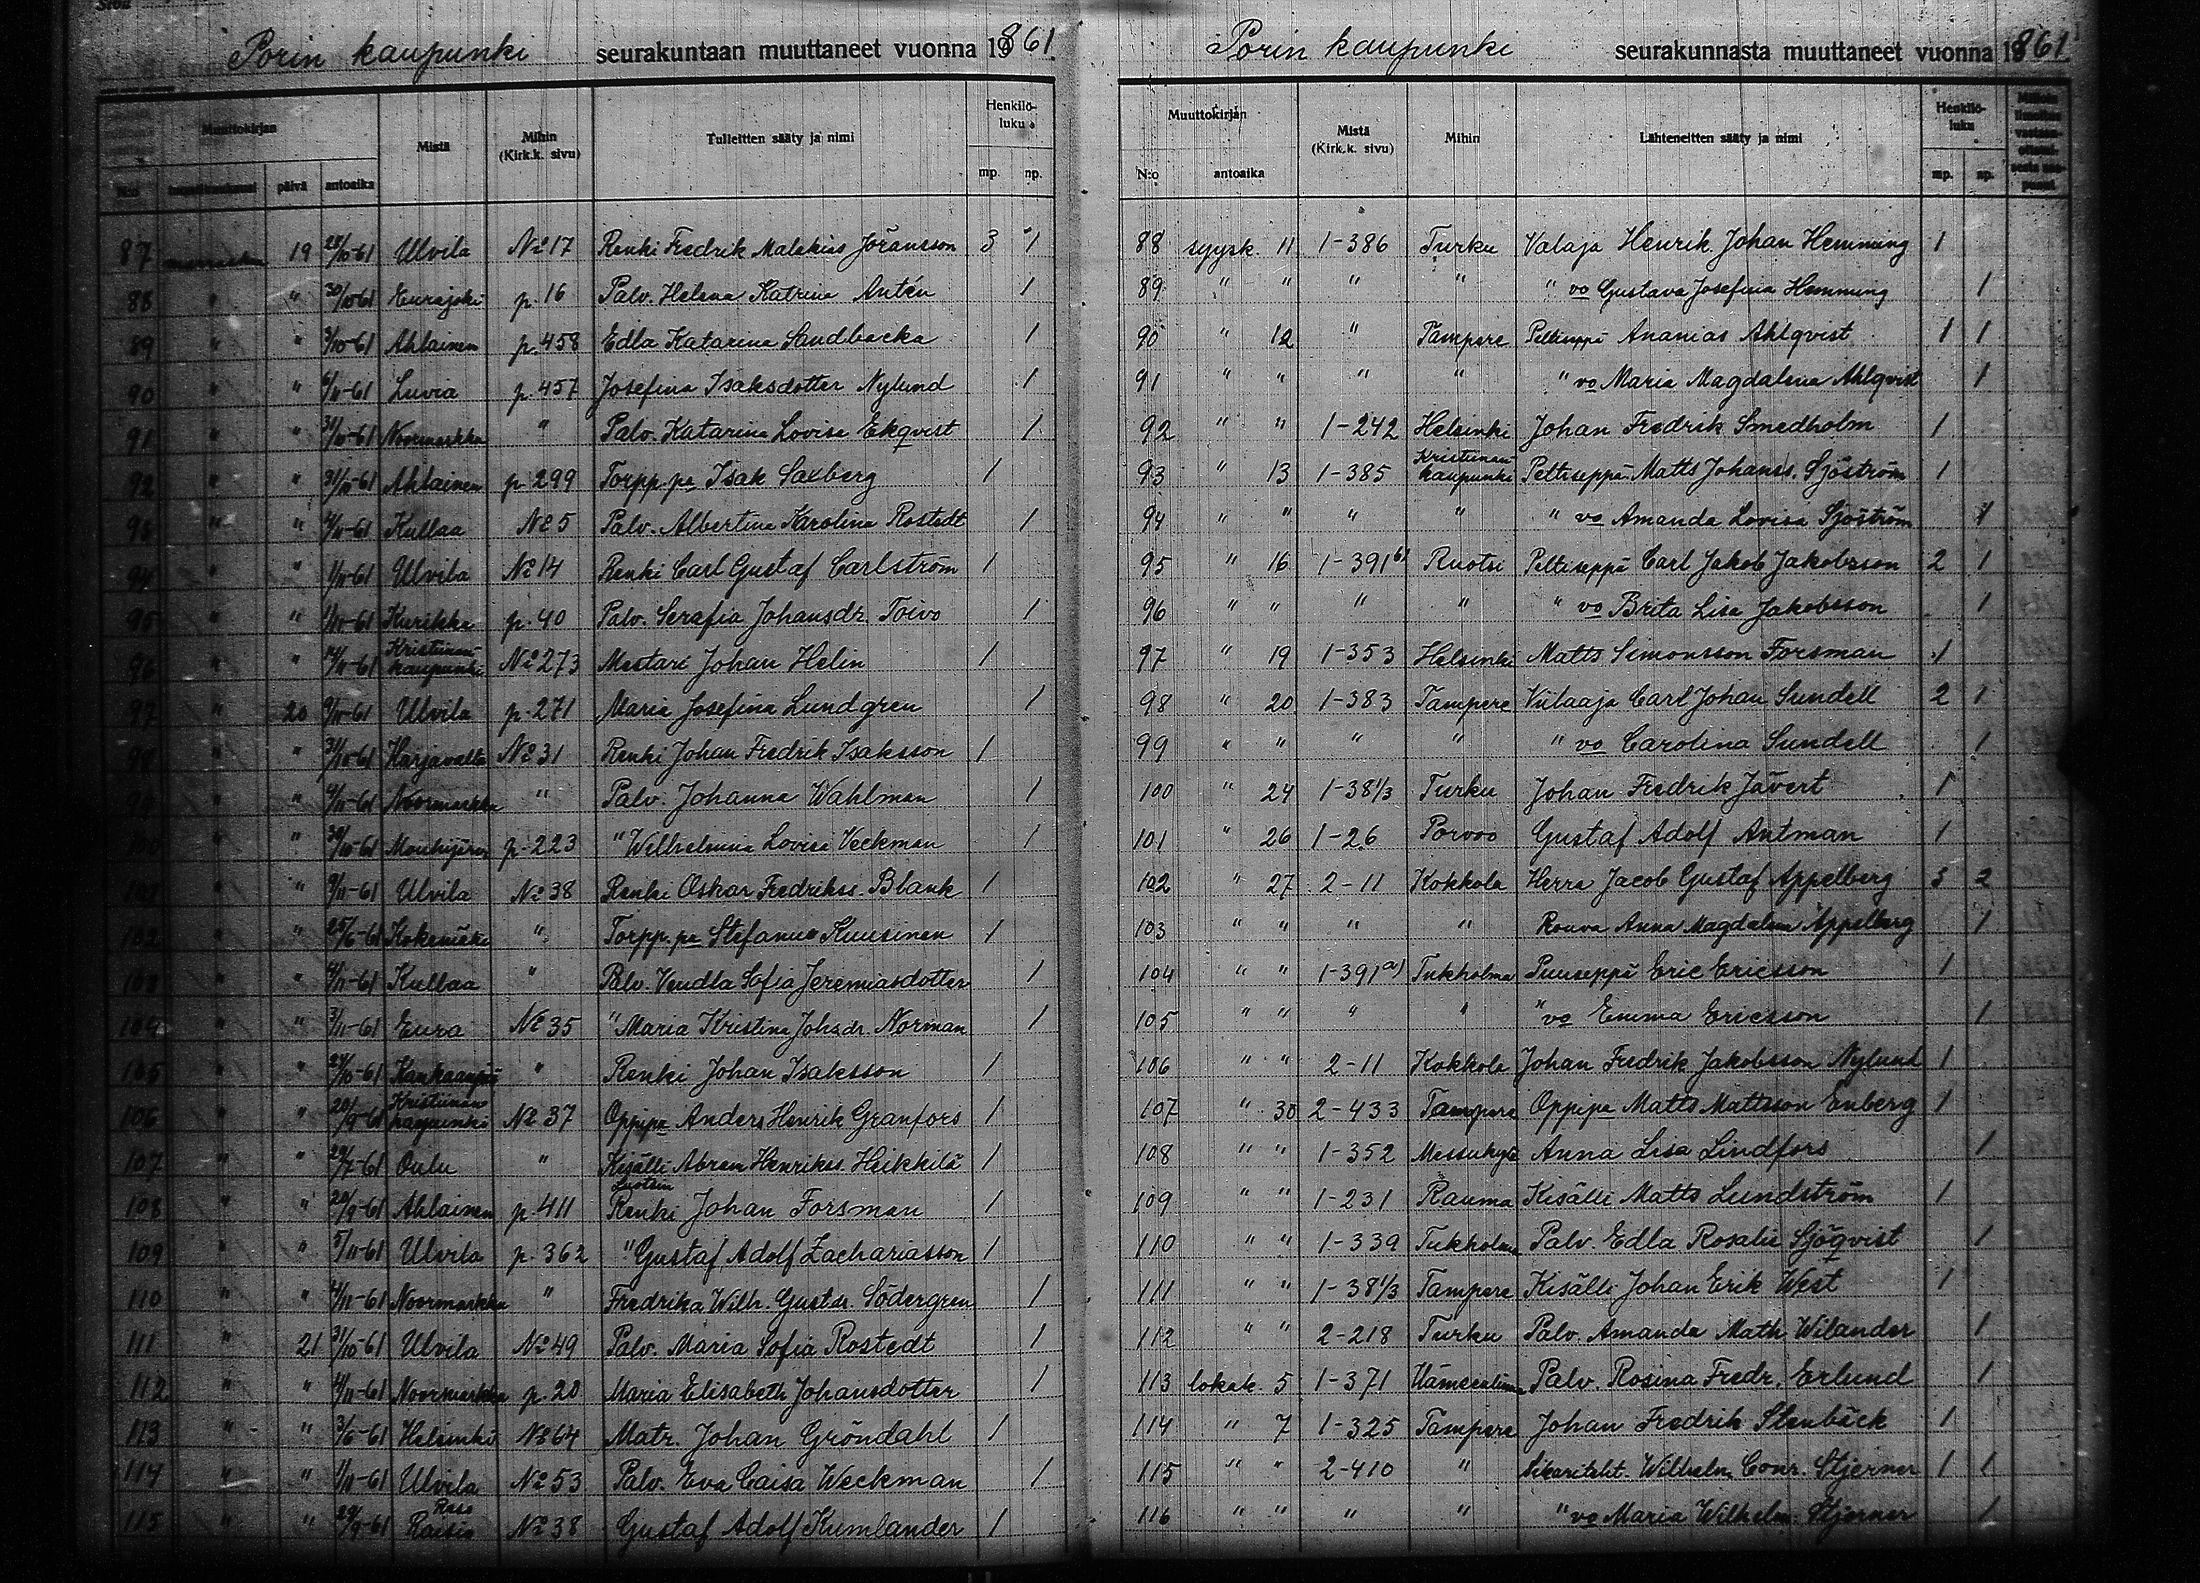 Porin kaupunki seurakuntaan muuttaneet vuonna 1861.
Muuttokirjan Mistä Mihin (Kirk.k. sivu) Tulleitten sääty ja nimi Henkilö-luku
N:o päivä antoaika mp. np.
87 19 28/10-61 Ulvila No 17 Renki Fredrik Malakias Joransson 3 1
88 " " 30/10-61 Eurajoki p. 16 Palv. Helena Katrina Antén 1
89 " " 3/10-61 Ahlainen p. 458 Edla Katarina Sandbacka 1
90 " " 6/11-61 Luvia p. 457 Josefina Isaksdotter Nylund 1
91 " " 31/10-61 Noormarkku " Palv. Katarina Lovisa Ekqvist 1
92 " " 31/10-61 Ahlainen p. 299 Torpp.pa Isak Saxberg 1
93 " " 4/11-61 Kullaa No 5 Palv. Albertina Karolina Rostedt 1
94 " " 1/11-61 Ulvila No 14 Renki Carl Gustaf Carlström 1
95 " " 1/11-61 Kurikka p. 40 Palv. Serafia Johansdr. Toivo 1
96 " " 14/11-61 Kristiinan-kaupunki No 273 Mestari Johan Helin 1
97 " 20 9/11-61 Ulvila p. 271 Maria Josefina Lundgren 1
98 " " 31/10-61 Harjavalta No 31 Renki Johan Fredrik Isaksson 1
99 " " 4/11-61 Noormarkku " Palv. Johanna Wahlman 1
100 " " 30/10-61 Mouhijärvi p. 223 " Wilhelmina Lovisa Veckman 1
101 " " 9/11-61 Ulvila No 38 Renki Oskar Fredrikss. Blank 1
102 " " 25/6-61 Kokemäki " Torpp.pa Stefanus Kuusinen 1
103 " " 4/11-61 Kullaa " Palv. Vendla Sofia Jeremiasdotter 1
104 " " 3/11-61 Eura No 35 " Maria Kristina Johsdr. Norman 1
105 " " 24/10-61 Kankaanpää " Renki Johan Isaksson 1
106 " " 20/9-61 Kristiinan kaupunki No 37 Oppipa Anders Henrik Granfors 1
107 " " 29/7-61 Oulu " Kisälli Abram Henrikss. Heikkilä 1
108 " " 20/9-61 Ahlainen p. 411 Luotsin Renki Johan Forsman 1
109 " " 5/11-61 Ulvila p. 362 " Gustaf Adolf Zachariasson 1
110 " " 4/11-61 Noormarkku " Fredrika Wilh. Gustdr. Södergren 1
111 " 21 31/10-61 Ulvila No 49 Palv. Maria Sofia Rostedt 1
112 " " 4/11-61 Noormarkku p. 20 Maria Elisabeth Johansdotter 1
113 " " 3/6-61 Helsinki No 64 Matr. Johan Gröndahl 1
114 " " 1/11-61 Ulvila No 53 Palv. Eva Caisa Weckman 1
115 " " 29/9-61 Raisio No 38 Gustaf Adolf Kumlander 1
Porin kaupunki seurakunnasta muuttaneet vuonna 1861
Muuttokirjan Mistä (Kirk.k. sivu) Mihin Lähteneitten sääty ja nimi Henkilö-luku
N:o antoaika mp. np.
88 syysk. 11 1-386 Turku Valaja Henrik Johan Hemming 1
89 " " " " " vo Gustava Josefina Hemming 1
90 " 12 " Tampere Peltiseppä Ananias Ahlqvist 1 1
91 " " " " " vo Maria Magdalena Ahlqvist 1
92 " " 1-242 Helsinki Johan Fredrik Smedholm 1
93 " 13 1-385 Kristiinan-kaupunki Peltiseppä Matts Johanss. Sjöström 1
94 " " " " " vo Amanda Lovisa Sjöström 1
95 " 16 1-391 b) Ruotsi Peltiseppä Carl Jakob Jakobsson 2 1
96 " " " " " vo Brita Lisa Jakobsson 1
97 " 19 1-353 Helsinki Matts Simonsson Forsman 1
98 " 20 1-383 Tampere Viilaaja Carl Johan Sundell 2 1
99 " " " " " vo Carolina Sundell 1
100 " 24 1-381/3 Turku Johan Fredrik Jävert 1
101 " 26 1-26 Porvoo Gustaf Adolf Antman 1
102 " 27 2-11 Kokkola Herra Jacob Gustaf Appelberg 3 2
103 " " " " Rouva Anna Magdalena Appelberg 1
104 " " 1-391 a) Tukholma Puuseppä Eric Ericsson 1
105 " " " " " vo Emma Ericsson 1
106 " " 2-11 Kokkola Johan Fredrik Jakobsson Nylund 1
107 " 30 2-433 Tampere Oppipa Matts Mattsson Enberg 1
108 " " 1-352 Messukylä Anna Lisa Lindfors 1
109 " " 1-231 Rauma Kisälli Matts Lundström 1
110 " " 1-339 Tukholma Palv. Edla Rosalie Sjöqvist 1
111 " " 1-381/3 Tampere Kisälli Johan Erik West 1
112 " " 2-218 Turku Palv. Amanda Math Wilander 1
113 lokak. 5 1-371 Hämeenlinna Palv. Rosina Fredr. Erlund 1
114 " 7 1-325 Tampere Johan Fredrik Stenbäck 1
115 " " 2-410 " Wilhelm Conr. Stjerner 1 1
116 " " " " " vo Maria Wilhelm. Stjerner 1